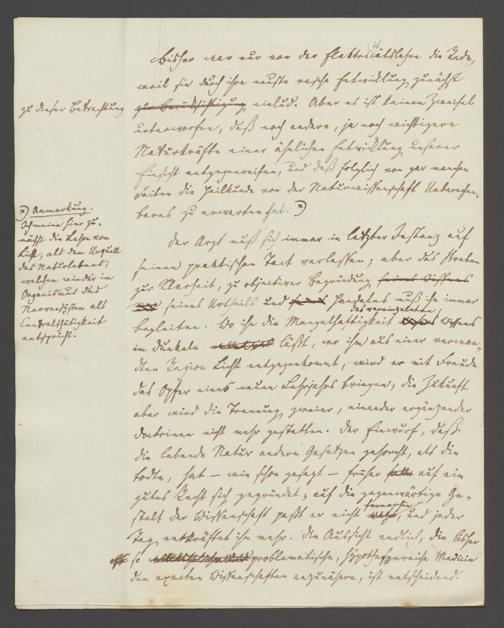 Bisher war nur von der Elektricitätslehre die Rede,
weil sie durch ihre neuste rasche Entwicklung zunächst
zu dieser Betrachtung
einlud. Aber es ist keinem Zweifel
unterworfen, daß noch andere, ja noch wichtigere
Naturkräfte einer ähnlichen Entwicklung unserer
Einsicht entgegenreifen, und daß folglich von gar manchen
Seiten die Heilkunde von der Naturwissenschaft
zu erwarten hat. *)
*) Anmerkung.
hier zu-
nächst die Lehre vom
Licht, als dem
des Naturlebens,
welchem wieder im
Organismus das
Nervensystem als
Centralthätigkeit
entspricht.
Der Arzt muß sich immer in letzter Instanz auf
seinen praktischen Tact verlassen; aber das Streben
zur Klarheit, zu objectiver Begründung
seines Urtheils und Handelns muß ihn immer
begleiten. Wo ihn die Mangelhaftigkeit des Wissens
im Dunkeln läßt, wo ihm aus einer verwan-
dten Region Licht entgegenkommt, wird er mit Freude
das Opfer eines neuen Lehrjahrs bringen; die Zukunft
aber wird die Trennung zweier, einander ergänzender
Doctrinen nicht mehr gestatten. Der Einwurf, daß
die lebende Natur andern Gesetzen gehorcht, als die
todte, hat – wie schon gesagt – früher auf ein
gutes Recht sich gegründet; auf die gegenwärtige Ge-
stalt der Wissenschaft paßt er nicht, und jeder
Tag entkräftet ihn mehr. Die Aussicht endlich, die bisher
so problematische, hypothesenreiche Medicin
den exacten Wissenschaften anzunähern, ist entscheidend.